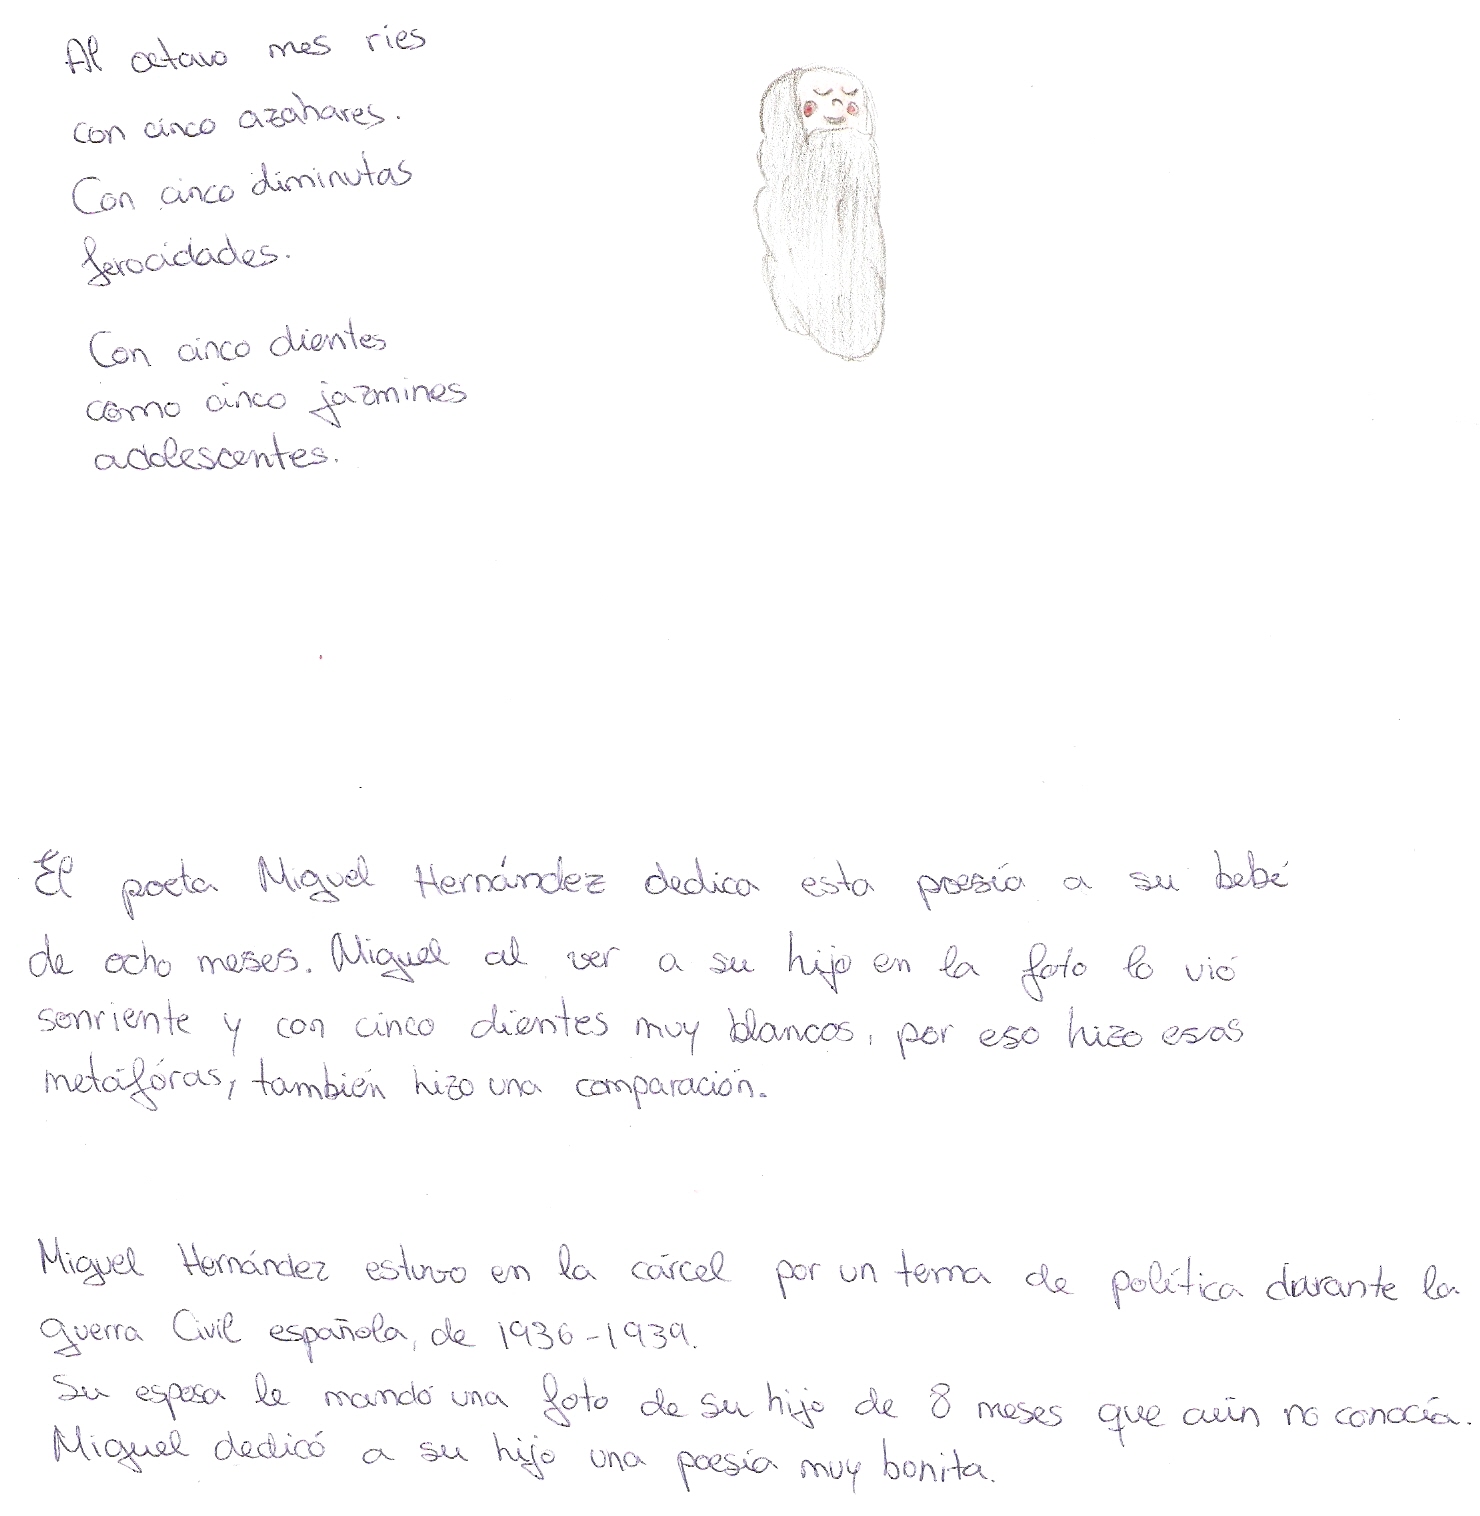 Al octavo mes ries
con cinco azahares.
Con cinco diminutas
ferocidades.
Con cinco dientes
como cinco jazmines
adolescentes.
El poeta Miguel Hernández dedica esta poesía a su bebé
de ocho meses. Miguel al ver a su hijo en la foto lo vió
sonriente y con cinco dientes muy blancos, por eso hizo esas
metáfóras, también hizo una comparación.
Miguel Hernández estuvo en la cárcel por un tema de política durante la
guerra Civil española, de 1936-1939.
Su esposa le mandó una foto de su hijo de 8 meses que aún no conocía.
Miguel dedicó a su hijo una poesía muy bonita.